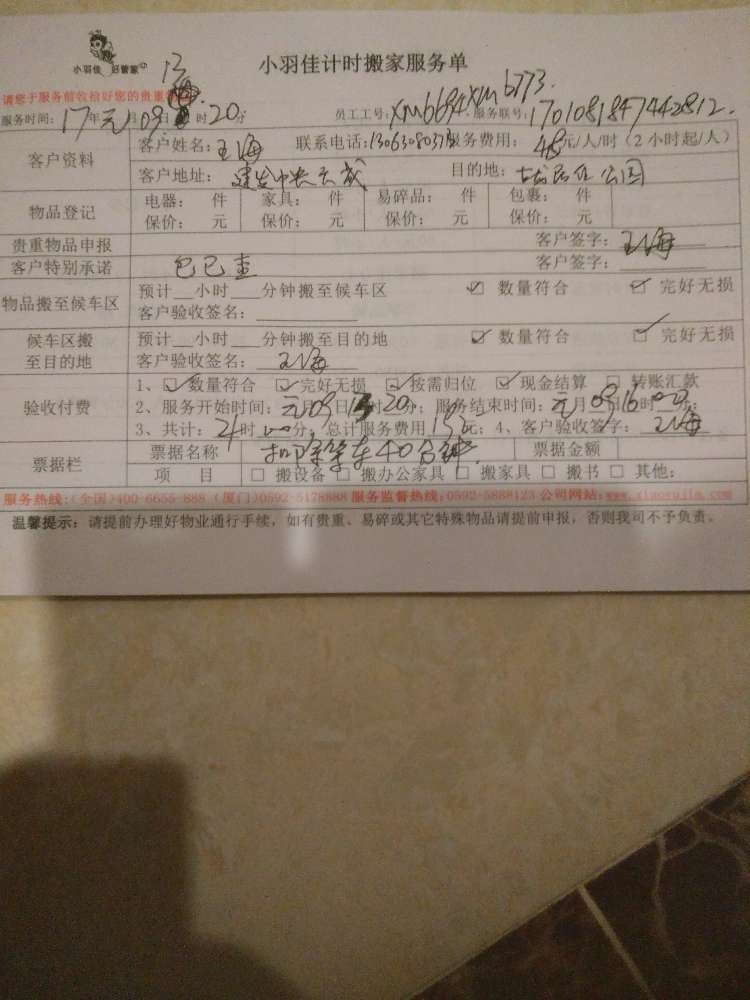 小羽佳 好管家
小羽佳计时搬家服务单
请您于服务前收拾好您的贵重
服务时间：17年元月09日13时20分 员工工号：XM6694XM6773 服务联号：1701081847442812
客户资料 客户姓名：王海 联系电话：服务费用：48元/人/时（2小时起/人）
客户地址：建发中央天成 目的地：公园
物品登记 电器： 件 家具： 件 易碎品： 件 包裹： 件
保价： 元 保价： 元 保价： 元 保价： 元
贵重物品申报 客户签字：王海
客户特别承诺 客户签字：
物品搬至候车区 预计__小时___分钟搬至候车区 ☑ 数量符合 ☑ 完好无损
客户验收签名：
候车区搬至目的地 预计__小时___分钟搬至目的地 ☑ 数量符合 ☑ 完好无损
客户验收签名：王海
验收付费 1、☑数量符合 ☑完好无损 ☑按需归位 ☑现金结算 □ 转账汇款
2、服务开始时间：元月09日13时20分；服务结束时间：元月09日16时00分；
3、共计：2时00分，总计服务费用192元；4、客户验收签字：王海
票据栏 票据名称 扣除等车40分钟 票据金额
项 目 □ 搬设备 □ 搬办公家具 □ 搬家具 □ 搬书 □ 其他：
服务热线：(全国)400-6655-888 (厦门)0592-5178888 服务监督热线：0592-5888123 公司网站：www.xiaoyujia.com
温馨提示：请提前办理好物业通行手续，如有贵重、易碎或其它特殊物品请提前申报，否则我司不予负责。